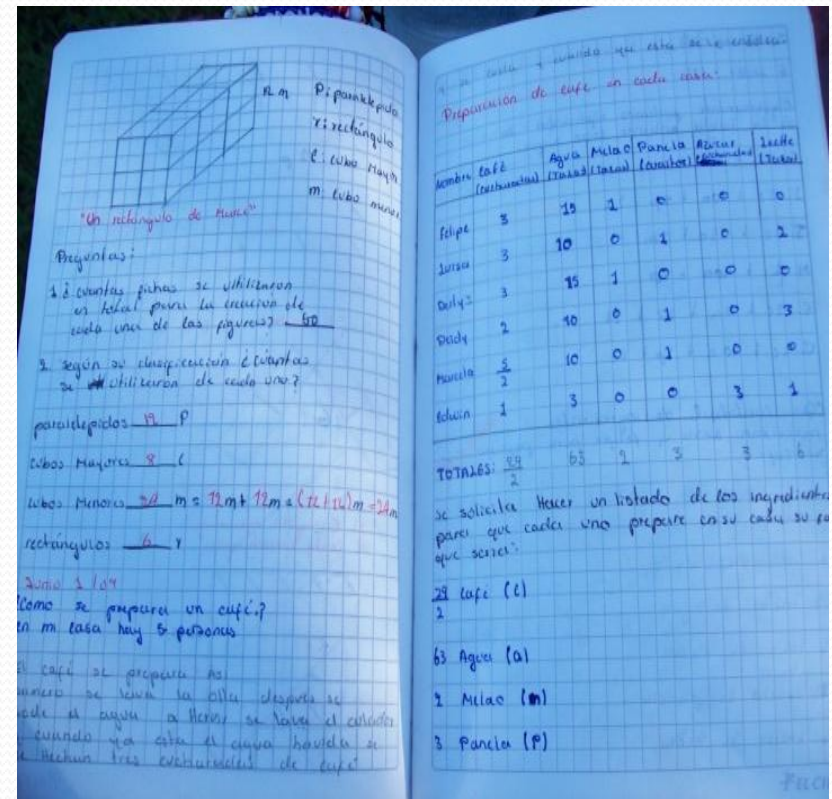 12 m
P: paralelepido
r: rectángulo
C: cubo Mayor
m: cubo menor
"Un rectángulo de Marce"
Preguntas:
1 ¿ cuantas fichas se utilizaron
en total para la creacion de
cada una de las figuras? 60
2 según su clasificación ¿cuantas
se utilizaron de cada uno?
paralelepidos 19 P
cubos Mayores 8 C
cubos Menores 24 m = 12m + 12m = (12+12)m = 24m
rectángulos 6 r
Junio 1 / 09
¿Como se prepara un café?
en mi casa hay 5 personas
el café se prepara asi
primero se lava la olla después se
el agua a Hervir se lava el colador
cuando ya esta el agua havida se
Hechan tres cucharadas de café
Preparación de café en cada casa:
Nombre Café (cucharadas) Agua (Tazas) Melao (Tazas) Panela (cuartos) Azucar (cucharadas) Leche (Tazas)
Felipe 3 15 1 0 0 0
Luisa 3 10 0 1 0 2
3 15 1 0 0 0
2 10 0 1 0 3
Marcela 5/2 10 0 1 0 0
Edwin 1 3 0 0 3 1
TOTALES: 29/2 63 2 3 3 6
se solicita Hacer un listado de los ingredientes
para que cada uno prepare en su casa su
que seria:
29/2 Café (C)
63 Agua (a)
2 Melao (m)
3 Panela (P)